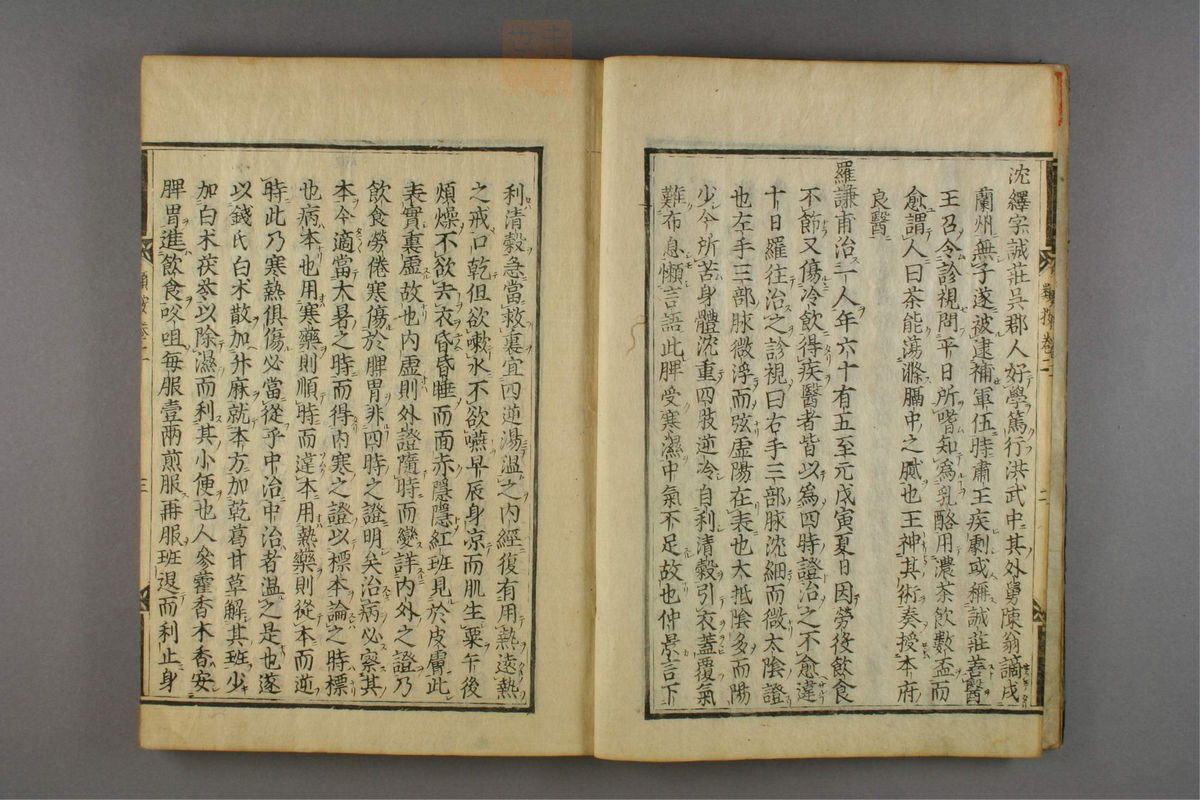 沈繹字誠莊吳郡人好學篤行洪武中其外舅陳翁謫戍
蘭州無子遂被逮補軍伍時肅王疾劇或稱誠莊善醫
王召令診視問平日所嗜知爲乳酪用濃茶飲數盃而
愈謂人曰茶能蕩滌膈中之膩也王神其術奏授本府
良醫
羅謙甫治一人年六十有五至元戊寅夏日因勞役飲食
不節又傷冷飲得疾醫者皆以爲四時證治之不愈違
十日羅往治之診視曰右手三部脉沈細而微太陰證
也左手三部脉微浮而弦虛陽在表也大抵陰多而陽
少今所苦身體沈重四肢逆冷自利清穀引衣蓋覆氣
難布息懶言語此脾受寒濕中氣不足故也仲景言下
利清穀急當救裏宜四逆湯溫之内經復有用熱遠熱
之戒口乾但欲嗽水不欲嚥早辰身凉而肌生粟午後
煩燥不欲去衣昏昏睡而面赤隱隱紅班見於皮膚此
表實裏虛故也内虛則外證隨時而變詳内外之證乃
飲食勞倦寒傷於脾胃非四時之證明矣治病必察其
本今適當大暑之時而得内寒之證以標本論之時標
也病本也用寒藥則順時而違本用熱藥則從本而逆
時此乃寒熱俱傷必當從乎中治中治者溫之是也遂
以錢氏白朮散加升麻就本方加乾葛甘草解其班少
加白朮茯苓以除濕而利其小便也人參藿香木香安
脾胃進飲食㕮咀每服壹兩煎服再服班退而利止身